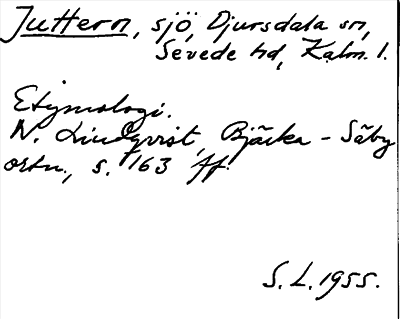 Juttern, sjö, Djursdala sn,
Sevede hd, Kalm. l.
Etymologi.
N. Lindqvist, Bjärka - Säby
ortn., s. 163 ff.
S. L. 1955.